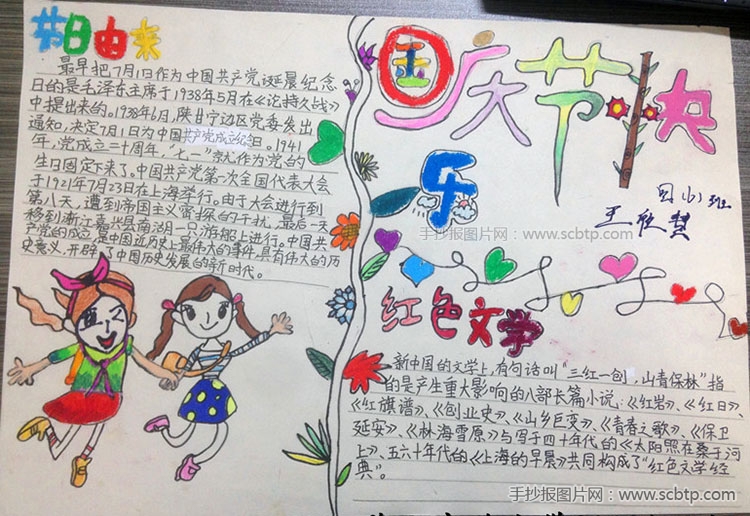 节日由来
最早把7月1日作为中国共产党诞晨纪念
日的是毛泽东主席于1938年5月在《论持久战》
中提出来的。1938年6月,陕甘宁边区党委发出
通知,决定7月1日为中国共产党成立纪念日。1941
年,党成立二十周年,“七一”就作为党的
生日固定下来了。中国共产党第一次全国代表大会
于1921年7月23日在上海举行。由于大会进行到
第八天,遭到帝国主义密探的干扰,最后一天
移到浙江嘉兴县南湖一只游船上进行。中国共
产党的成立,是中国近历史上最伟大的事件,具有伟大的历
史意义,开辟了中国历史发展的新时代。
国庆节快
乐
四(3)班
王欣慧
手抄报图片网:www.scbtp.com
红色文学
新中国的文学上,有句话叫“三红一创,山青保林”指
的是产生重大影响的八部长篇小说:《红岩》、《红日》、
《红旗谱》、《创业史》、《山乡巨变》、《青春之歌》、《保卫
延安》、《林海雪原》与写于四十年代的《太阳照在桑干河
上》、五六十年代的《上海的早晨》共同构成了“红色文学经
典”。
手抄报图片网:www.scbtp.com